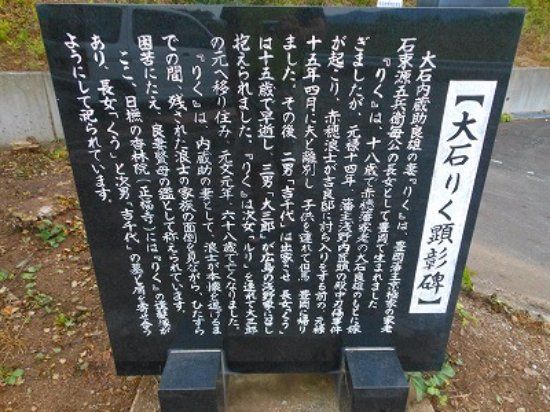 【大石りく顕彰碑】
大石内蔵助良雄の妻『りく』は、豊岡藩主京極家の家老
石束源五兵衛毎公の長女として豊岡で生まれました
『りく』は、十八歳で赤穂藩家老の大石良雄のもとに嫁
ぎましたが、元禄十四年 藩主浅野内匠頭の殿中刃傷事件
が起こり、赤穂浪士が吉良邸に討ち入りをする前の元禄
十五年四月に夫と離別し 子供を連れて但馬 豊岡に帰り
ました。その後 二男「吉千代」は出家させ 長女「くう」
は十五歳で早逝し 三男「大三郎」が広島の浅野家に召し
抱えられました。『りく』は次女「ルリ」を連れて大三郎
の元へ移り住み、元文元年 六十八歳で亡くなりました。
『りく』は、内蔵助の妻として、浪士が本懐を遂げるま
での間、残された浪士の家族の面倒を見ながら、ひたすら
困苦にたえ、良妻賢母の鑑として称えられています。
ここ、日撫の香林院(正福寺)には『りく』の遺髪塚が
あり、長女「くう」と次男「吉千代」の墓も肩を寄せ合う
ようにして祀られています。